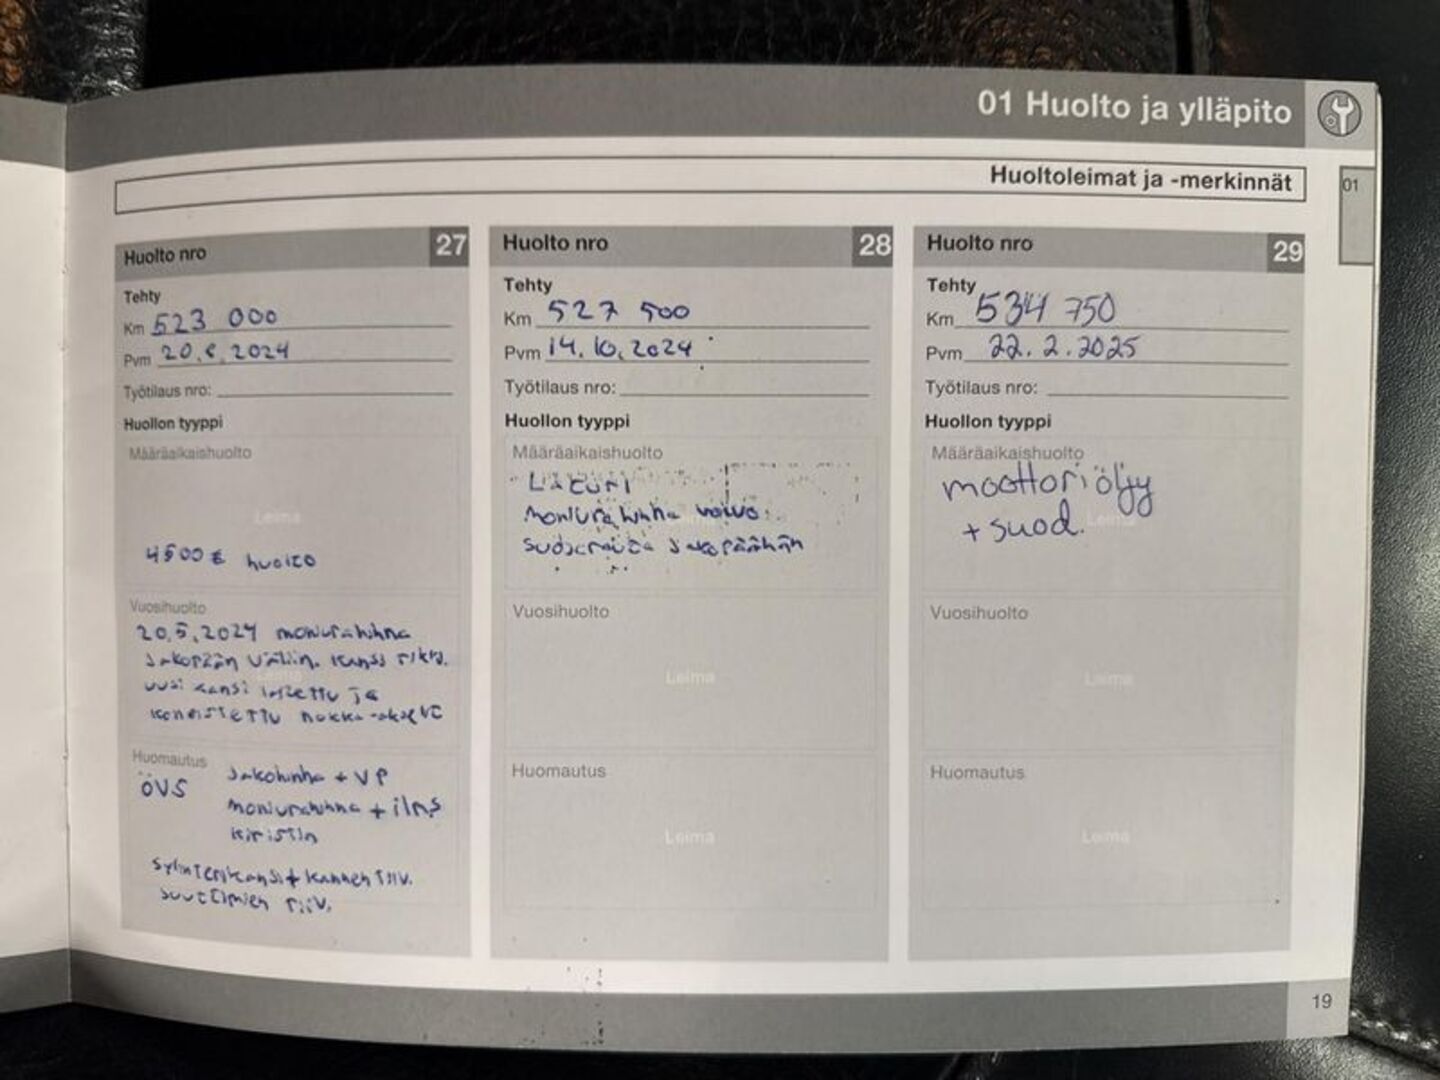 01 Huolto ja ylläpito
Huoltoleimat ja -merkinnät
01
Huolto nro 27
Tehty
Km 523 000
Pvm 20. 2024
Työtilaus nro:
Huollon tyyppi
Määräaikaishuolto
Leima
4500 € huolto
Vuosihuolto
20.5.2024 moniurahihna
Jakopään väliin. kansi rikki.
uusi kansi laitettu ja
koneistettu nokka-akselit
Huomautus
ÖVS Jakohihna + VP
moniurahihna +
kiristin
Sylinterikansi + kannen tiiv.
suuttimien tiiv.
Huolto nro 28
Tehty
Km 527 500
Pvm 14.10.2024
Työtilaus nro:
Huollon tyyppi
Määräaikaishuolto
Laturi
moniurahihna volvo
Suojarauta Jakopäähän
Vuosihuolto
Leima
Huomautus
Leima
Huolto nro 29
Tehty
Km 534 750
Pvm 22.2.2025
Työtilaus nro:
Huollon tyyppi
Määräaikaishuolto
moottoriöljy
+ suod.
Leima
Vuosihuolto
Leima
Huomautus
Leima
19